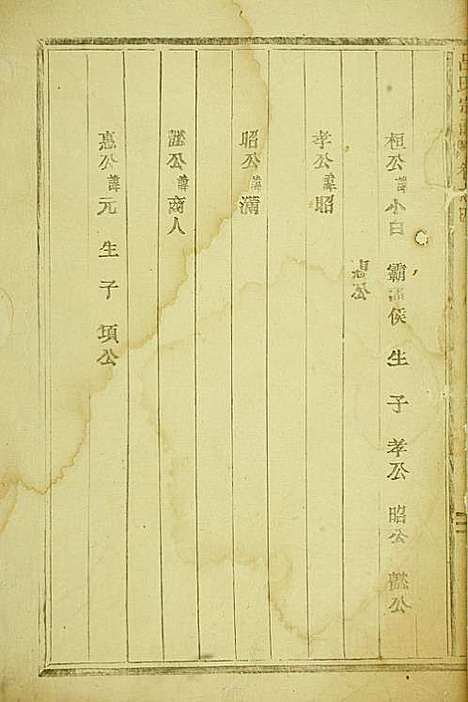 桓公諱小白霸諸侯生子孝公昭公懿公
惠公
孝公諱昭
昭公諱滿
懿公諱商人
惠公諱元生子項公